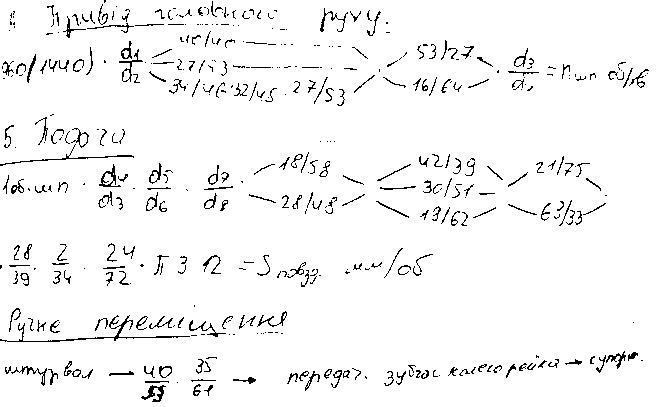 Привід головного руху:
(1440) · d1/d2 40/40 27/53 34/46 · 32/45 · 27/53 · 53/27 16/64 · d3/ = nшп об/хв
5. Подача
1об.шп · d4/d3 · d5/d6 · d7/d8 · 18/58 28/48 42/39 30/51 19/62 21/75 63/33 ·
· 28/39 · 2/34 · 24/72 · П 3 12 = Sповзд. мм/об
Ручне переміщення
штурвал → 40/ · 35/61 → передач. зубчас колесо рейка → супорт